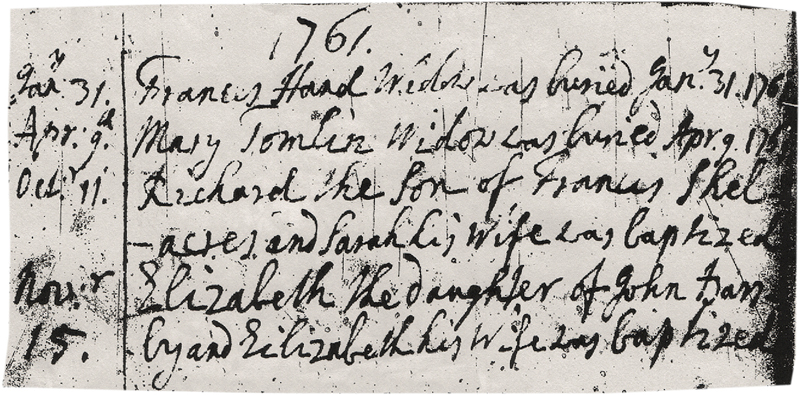 1761.
Jan.y 31. Francis Hand Widow was buried Jan.y 31. 176
Apr. 9. Mary Tomlin Widow was buried Apr 9 176
Oct.r 11. Richard the Son of Francis Shel-
-acres and Sarah his Wife was baptized
Nov.r Elizabeth the daughter of John Darn-
15. by and Eilizabeth his Wife was baptized